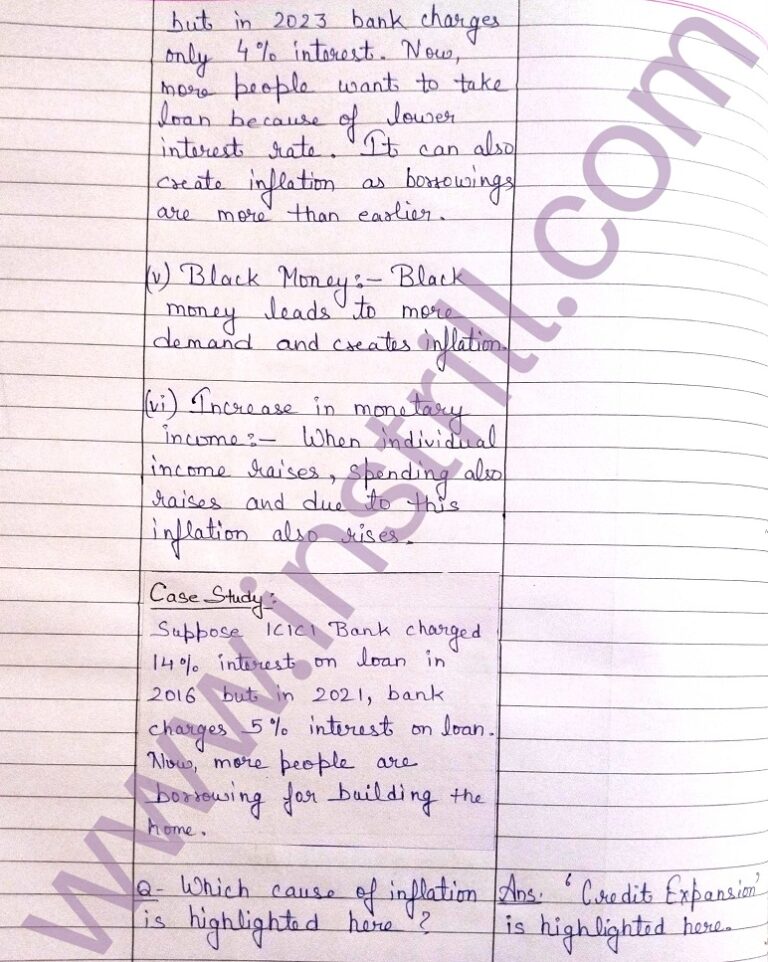 but in 2023 bank charges
only 4% interest. Now,
more people want to take
loan because of lower
interest rate. It can also
create inflation as borrowings
are more than earlier.
(v) Black Money:- Black
money leads to more
demand and creates inflation.
(vi) Increase in monetary
income:- When individual
income raises, spending also
raises and due to this
inflation also rises.
Case Study:
Suppose ICICI Bank charged
14% interest on loan in
2016 but in 2021, bank
charges 5% interest on loan.
Now, more people are
borrowing for building the
home.
Q- Which cause of inflation
is highlighted here?
Ans. 'Credit Expansion'
is highlighted here.
www.instrill.com